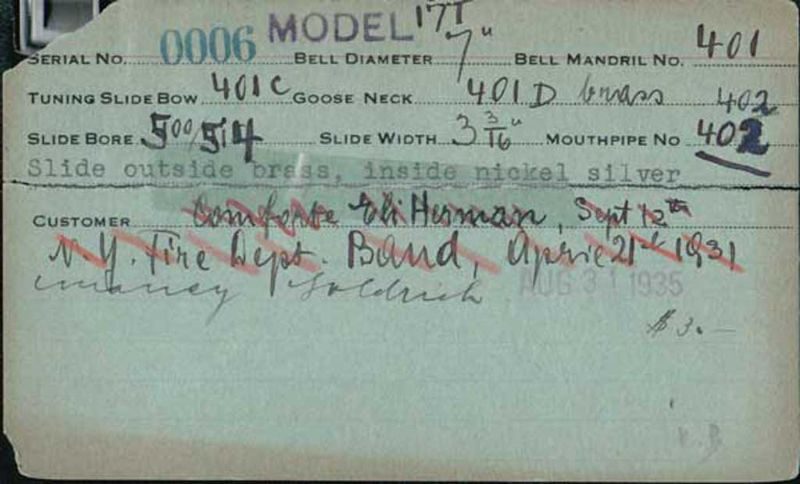 MODEL 17T
SERIAL NO. 0006 BELL DIAMETER 7" BELL MANDRIL NO. 401
TUNING SLIDE BOW 401C GOOSE NECK 401 D brass 402
SLIDE BORE 500/514 SLIDE WIDTH 3 3/16" MOUTHPIPE NO 402
Slide outside brass, inside nickel silver
CUSTOMER Eli Herman, Sept 12th
N.Y. Fire Dept. Band, April 21st 1931
Goldrich AUG 31 1935
$3.—